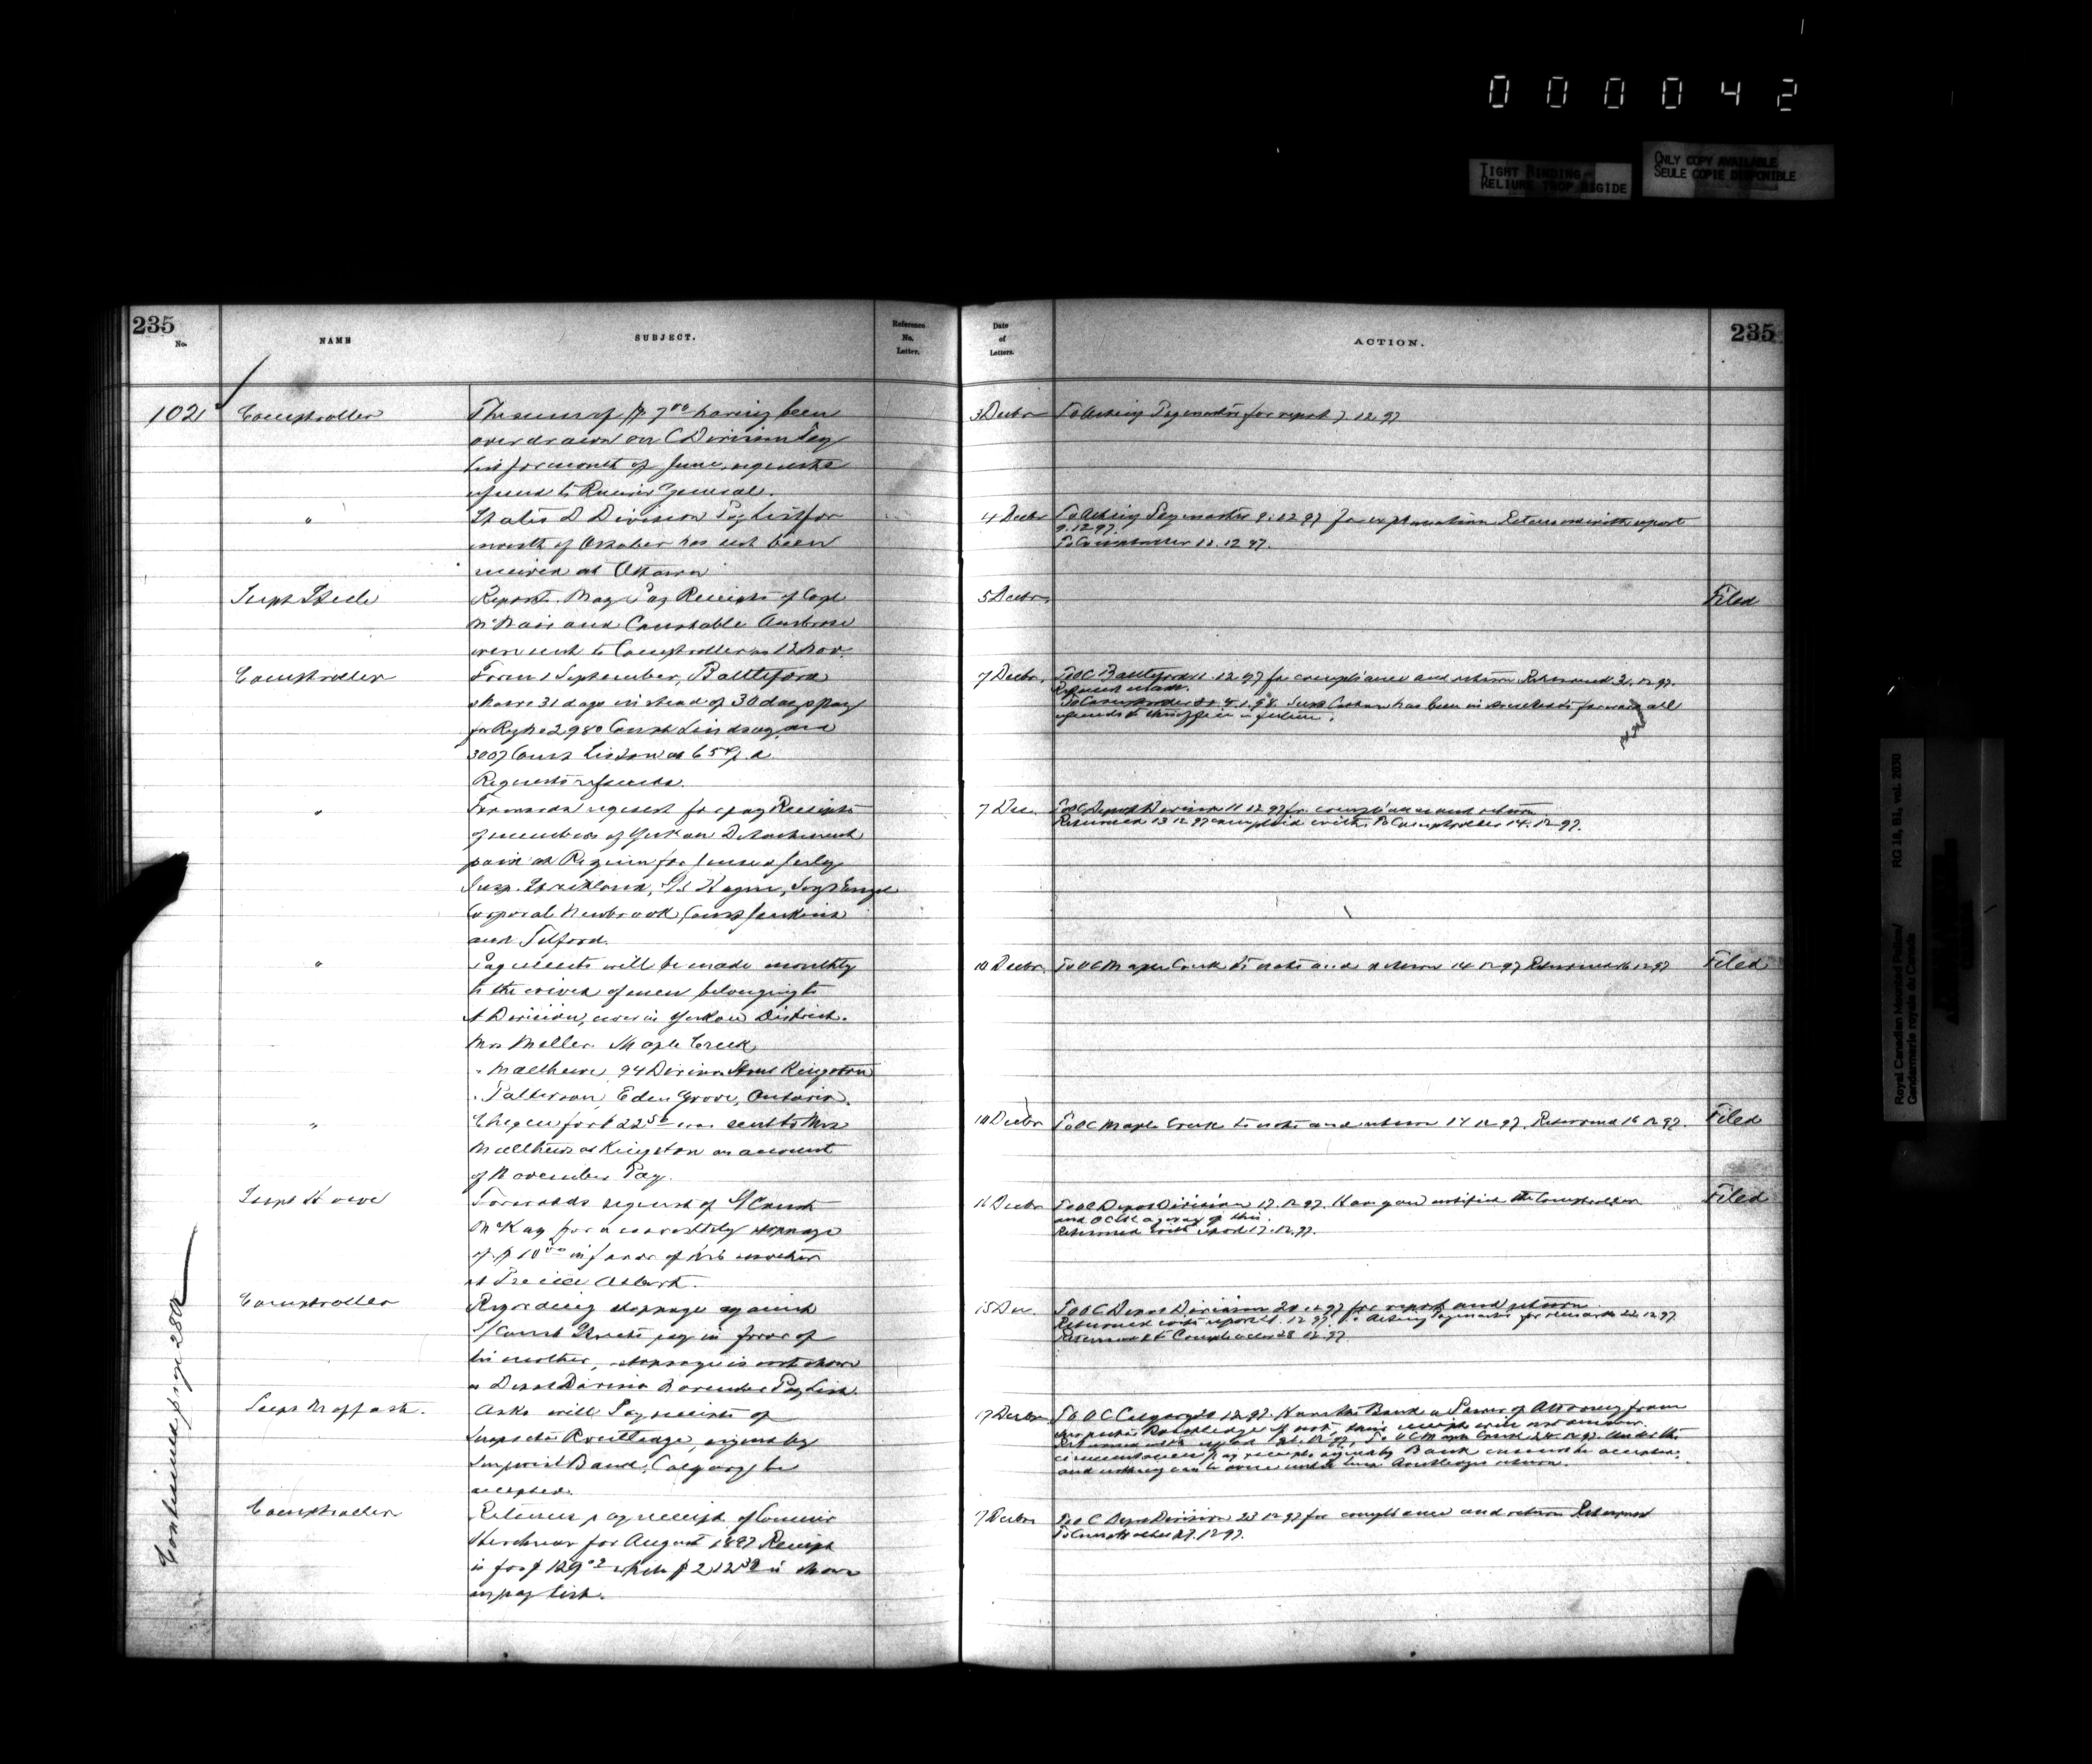 000042
TIGHT BINDING
RELIURE TROP RIGIDE
ONLY COPY AVAILABLE
SEULE COPIE DISPONIBLE
235
No.
NAME
SUBJECT.
Reference
No.
Letter.
Date
of
Letters.
ACTION.
235
102
Comptroller
The sum of $ 7 00 having been
overdrawn on C Division Pay
List for month of June, requests
refund to Receiver General.
3 Decbr
To Acting Paymaster for report 7.12.97
"
States D Division Pay List for
month of October has not been
received at Ottawa
4 Decbr
To Acting Paymaster 9.12.97 for explanation Returned with report
9.12.97.
To Comptroller 12.97.
Supt Steele
Reports May Pay Receipts of Corpl
McNair and Constable Ambrose
were sent to Comptroller on 12 Nov.
5 Decbr.
Filed
Comptroller
From 1 September, Battleford
shows 31 days instead of 30 days pay
for Regt No 2980 Const Lindsay and
3007 Const Liston at 65
Requests refunds.
7 Decbr.
To OC Battleford 12.97 for compliance and return Returned 12.97.
Refund made.
To Comptroller 4.1.98. Supt Cotton has been to forward all
refunds to this office in future.
"
Forwards request for pay Receipts
of members of Yukon Detachment
paid at Regina for June & July
Insp. Strickland, Sergt Engel
Corporal Newbrook, Const Jenkins
and Telford.
7 Dec.
To OC Depot Division 11.12.97 for compliance and return
Returned 13.12.97 complied with. To Comptroller 14.12.97.
"
Payments will be made monthly
to the wives of men belonging to
A Division, now in Yukon District.
Mrs Miller. Maple Creek
" Matthews, 94 Division Street Kingston
" Patterson, Eden Grove, Ontario.
10 Decbr.
To OC Maple Creek to note and return 14.12.97 Returned 16.12.97
Filed
"
Cheque for $22 50 was sent to Mrs
Matthews at Kingston on account
of November Pay.
10 Decbr
To OC Maple Creek to note and return 14.12.97. Returned 16.12.97.
Filed
Supt Howe
Forwards request of S/Const
McKay for a monthly stoppage
of $10 00 in favor of his mother
at Prince Albert.
16 Decbr
To OC Depot Division 17.12.97. Have you notified the Comptroller
and OC of this.
Returned with report 17.12.97.
Filed
Comptroller
Regarding stoppage against
S/Const pay in favor of
his mother, stoppage is not shown
on Depot Division November Pay List.
15 Dec.
To OC Depot Division 20.12.97 for report and return
Returned with report 12.97. To Acting Paymaster for remarks 22.12.97
Returned to Comptroller 28.12.97.
Supt Moffatt.
Asks will Pay receipts of
Inspector Routledge, signed by
Imperial Bank, Calgary be
accepted.
17 Decbr
To OC Calgary 20.12.97. Has the Bank a Power of Attorney from
Inspector Routledge If not, their receipt will not answer.
Returned with report 12.97. To OC Maple Creek 24.12.97. Under the
circumstances pay receipts signed by Bank cannot be accepted,
and nothing can be done until Insp Routledge's return.
Comptroller
Returns pay receipt of Commr
Herchmer for August 1897 Receipt
is for $ 129 while $ 212 is shown
on pay list.
17 Decbr
To OC Depot Division 23.12.97 for compliance and return Returned
To Comptroller 27.12.97.
Continued page 280
Royal Canadian Mounted Police/
Gendarmerie royale du Canada
RG 18, B1, vol. 2030